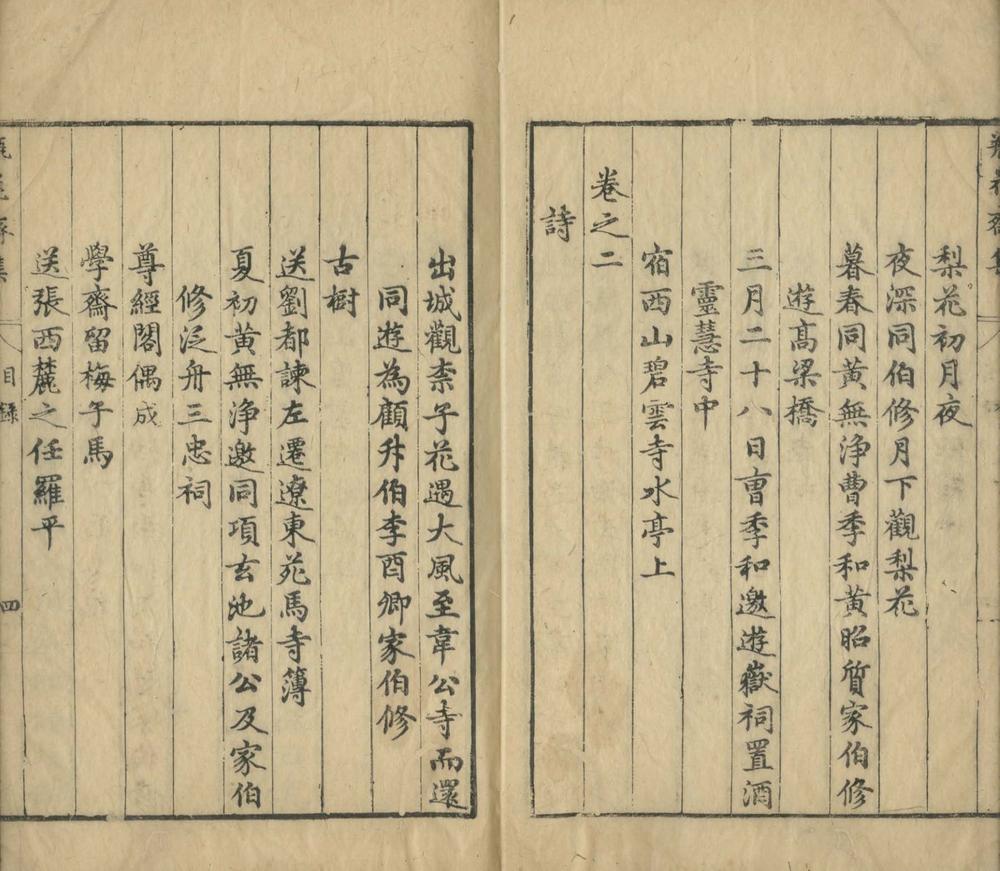 瓶花齋集
梨花初月夜
夜深同伯修月下觀梨花
暮春同黄無浄曹季和黄昭質家伯修
遊髙梁橋
三月二十八日曹季和邀遊嶽祠置酒
靈慧寺中
宿西山碧雲寺水亭上
卷之二
詩
出城觀柰子花遇大風至韋公寺而還
同遊為顧升伯李酉卿家伯修
古樹
送劉都諫左遷遼東苑馬寺簿
夏初黄無浄邀同項玄池諸公及家伯
修泛舟三忠祠
尊經閣偶成
學齋留梅子馬
送張西麓之任羅平
瓶花齋集 目錄 四